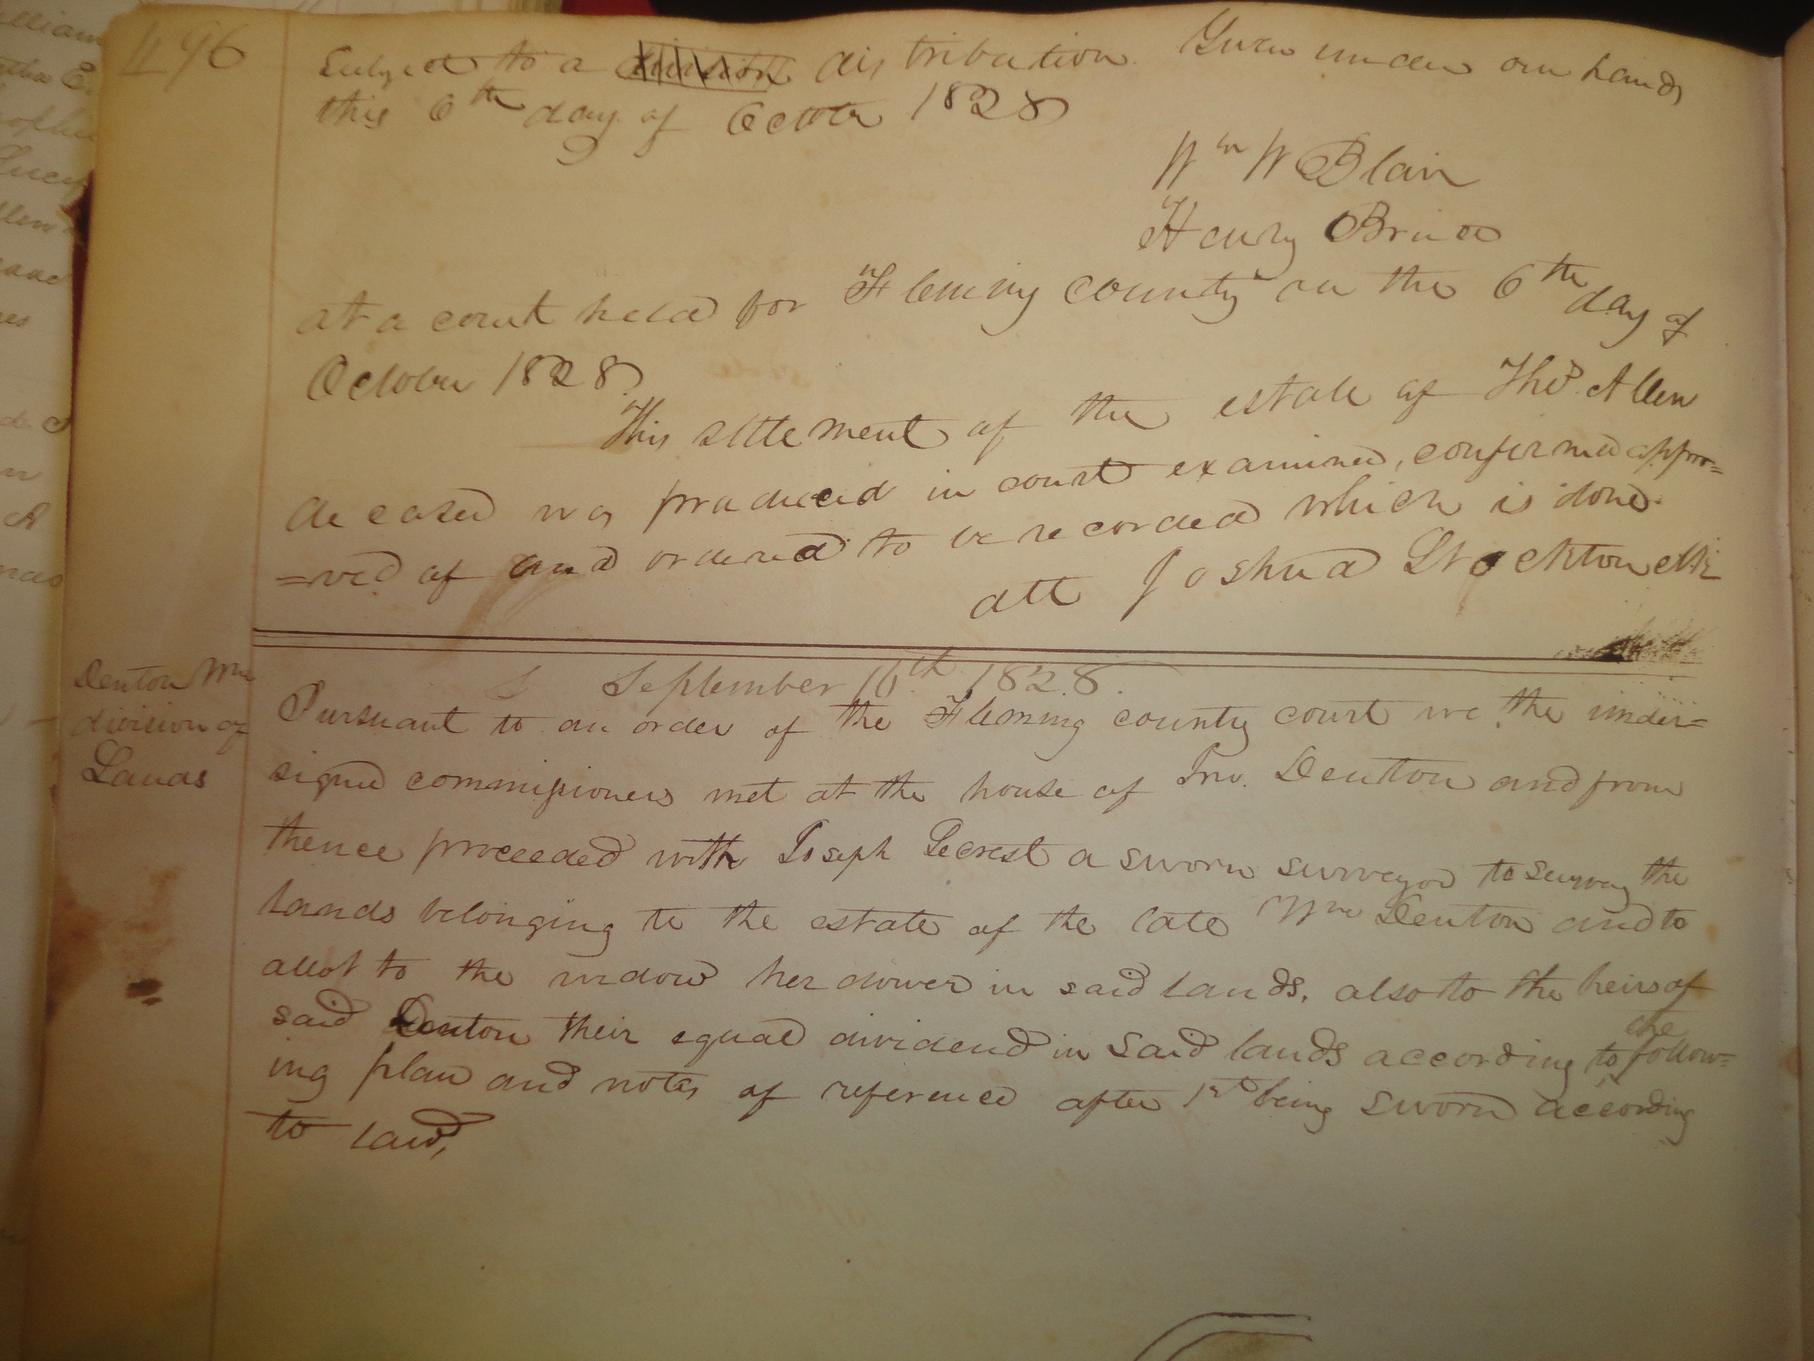 496
Subject to a division distribution. Given under our hands
this 6th day of Octobr 1828
Wm W Blair
Henry Bruce
at a court held for Fleming county on the 6th day of
October 1828.
This settlement of the estate of Thos. Allen
deceased was produced in court examined, confirmed appro=
=ved of and ordered to be recorded which is done.
att Joshua Stockton clk
Denton Wm
division of
Lands
September 16th 1828.
Pursuant to an order of the Fleming county court we the under=
signed commissioners met at the house of Jno. Denton and from
thence proceeded with Joseph Secrest a sworn surveyor to survey the
lands belonging to the estate of the late Wm Denton and to
allot to the widow her dower in said lands, also to the heirs of
said Denton their equal dividend in said lands according to the follow=
ing plan and notes of reference after 1st being sworn according
to law,